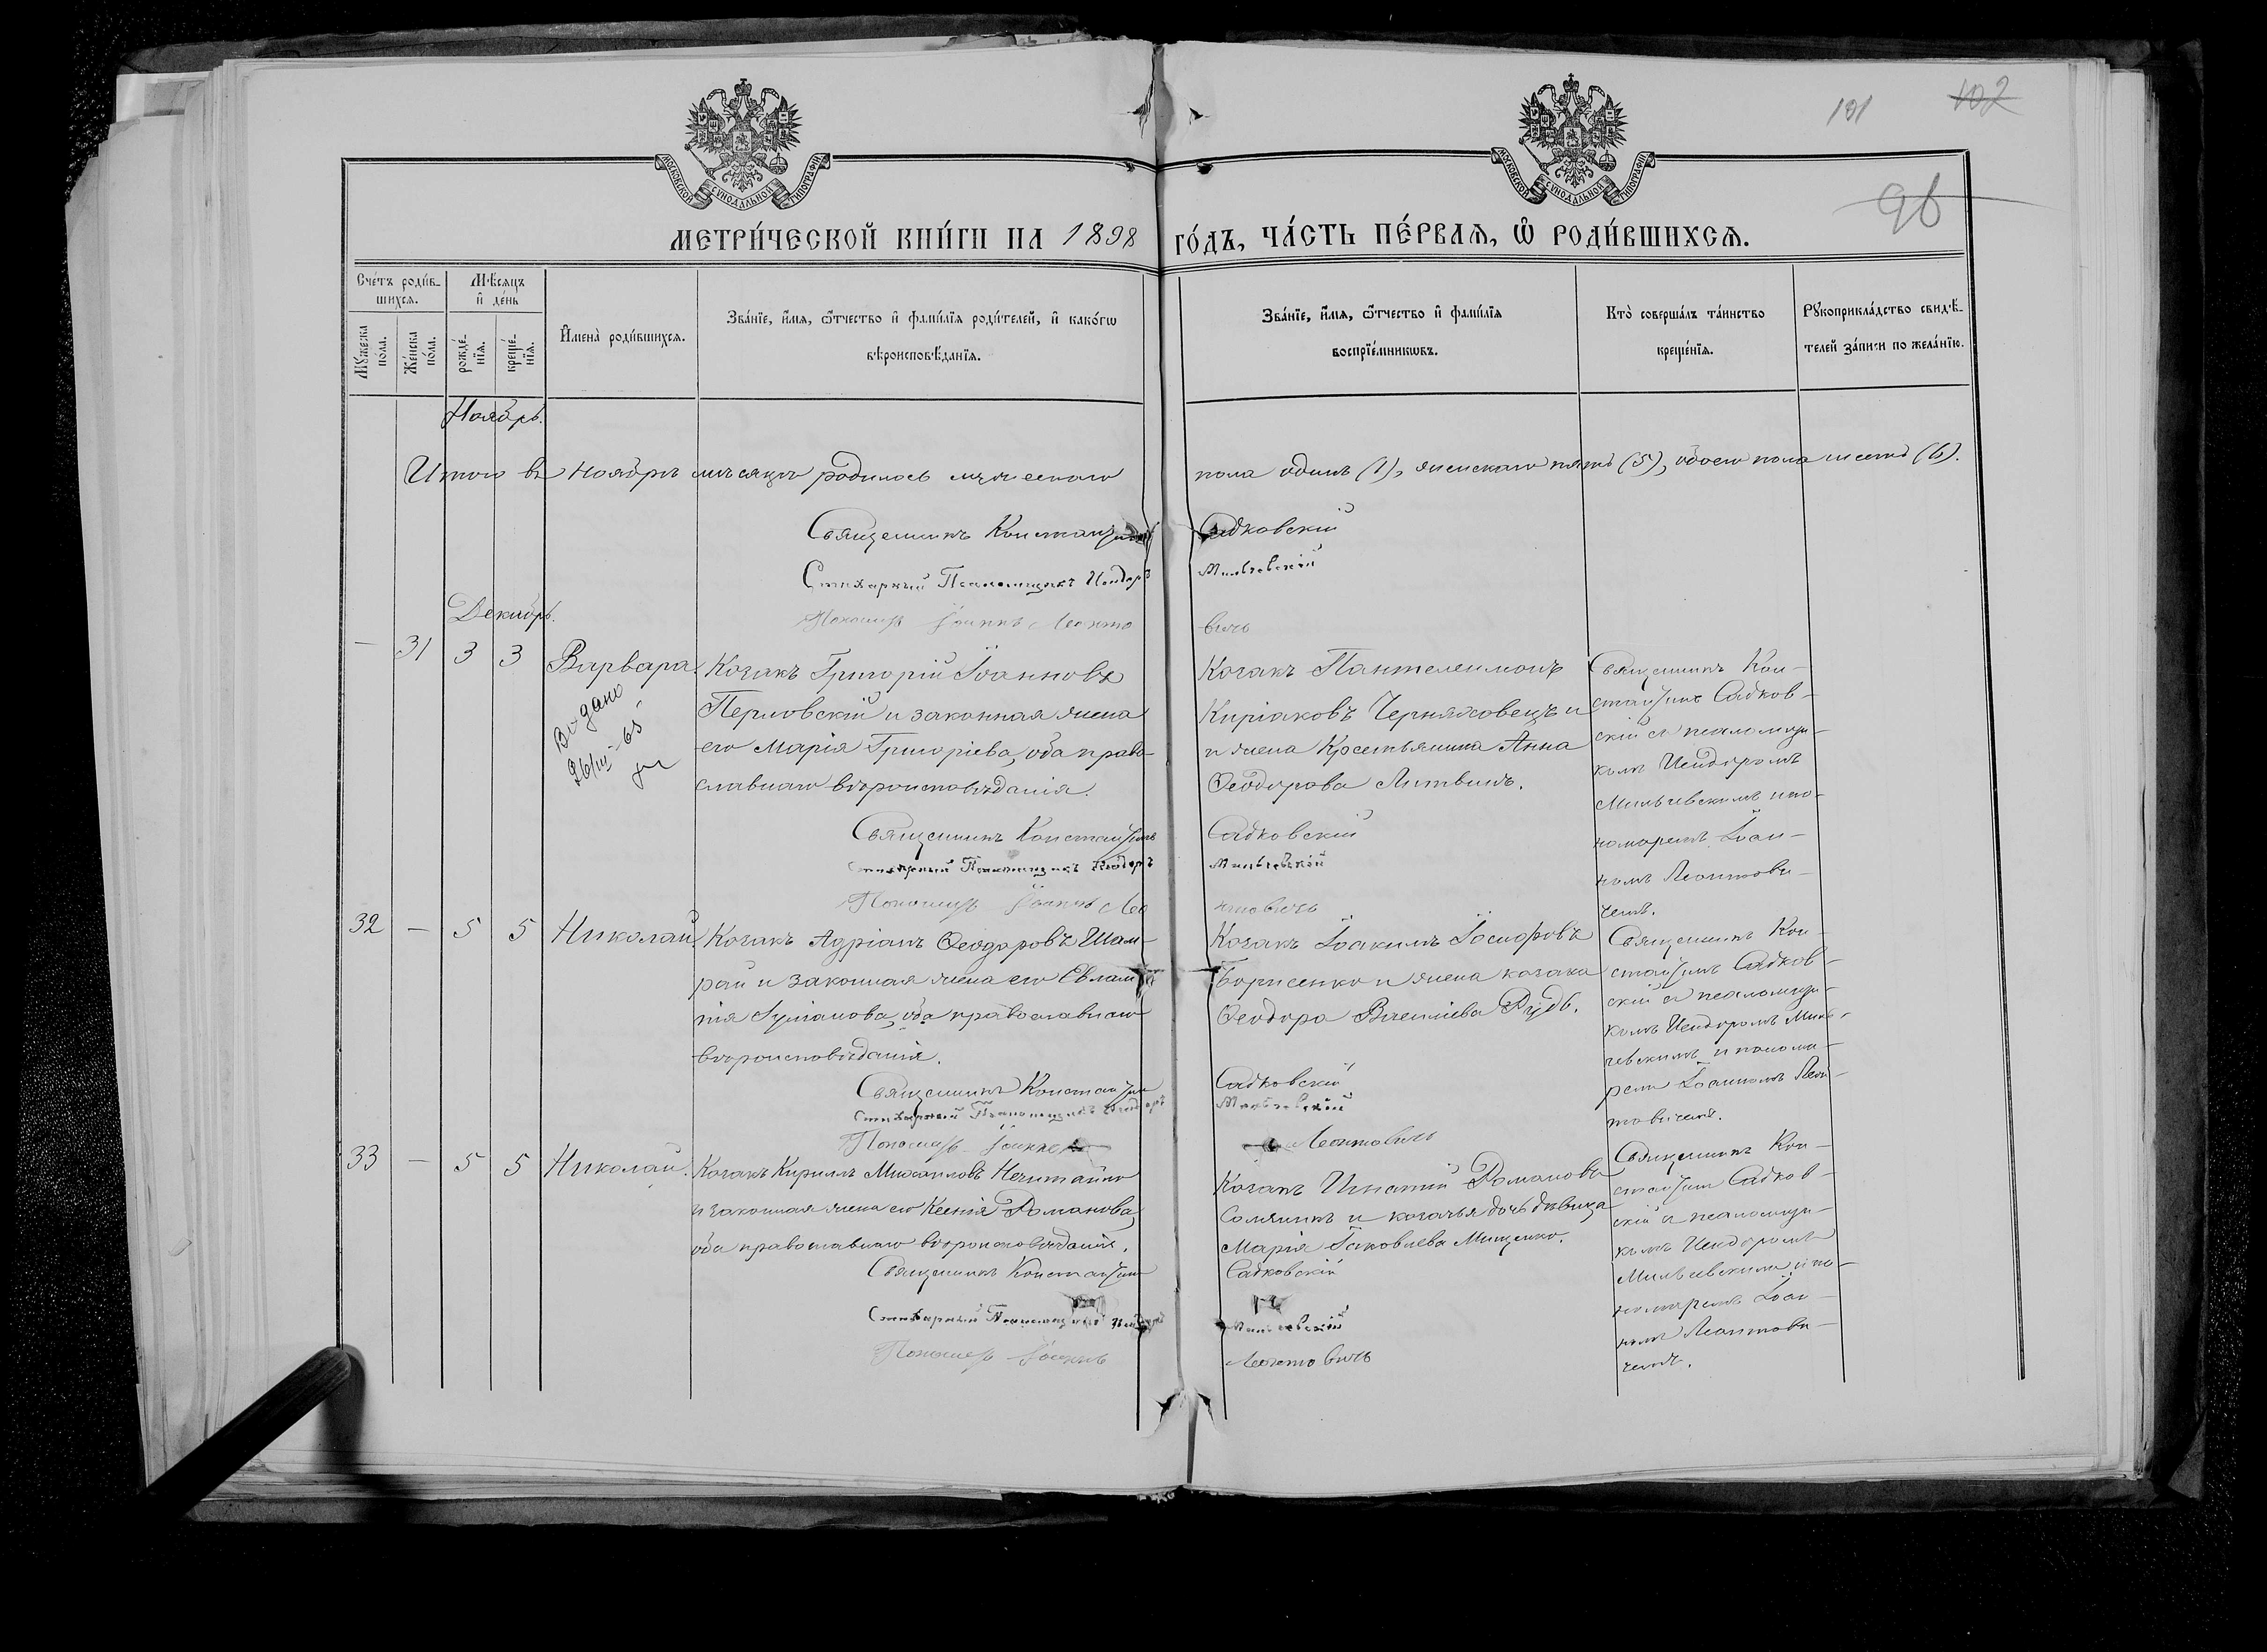 101 102
96
МОСКОВСКОЙ СѴНОДАЛЬНОЙ ТИПОГРАФІИ
МОСКОВСКОЙ СѴНОДАЛЬНОЙ ТИПОГРАФІИ
МЕТРИ́ЧЕСКОЙ КНИ́ГИ НА 1898 ГО́ДЪ, ЧА́СТЬ ПЕ́РВАѦ, Ѡ҆ РОДИ́ВШИХСѦ.
Сче́тъ роди́в-
шихсѧ.
Мѣ́сѧцъ
и҆ де́нь
Мꙋ́жеска
пола.
Же́нска
по́ла.
рожде́-
нїѧ.
креще́-
нїѧ.
И҆мена̀ роди́вшихсѧ.
Зва́нїе, и҆́мѧ, ѻ҆́тчество и҆ фами́лїѧ роди́телей, и҆ како́гѡ
вѣроисповѣ́данїѧ.
Зва́нїе, и҆́мѧ, ѻ҆́тчество и҆ фами́лїѧ
воспрїе́мникѡвъ.
Кто̀ соверша́лъ та́инство
креще́нїѧ.
Рꙋкоприкла́дство свидѣ́-
телей за́писи по жела́нїю.
Ноябрь.
Итого въ Ноябрѣ мѣсяцѣ родилось мужескаго пола одинъ (1), женскаго пять (5), обоего пола шесть (6).
Священникъ Константинъ Садковскій
Стихарный Псаломщикъ Исидоръ Мильчевскій
Пономарь Іоаннъ Леонтовичь
Декабрь.
— 31 3 3 Варвара.
Видано
26/III-65
Козакъ Григорій Іоанновъ
Перловскій и законная жена
его Марія Григоріева, оба право-
славнаго вѣроисповѣданія.
Козакъ Пантелеимонъ
Киріаковъ Черняховецъ и
и жена Крестьянина Анна
Ѳеодорова Литвинъ.
Священникъ Кон-
стантинъ Садков-
скій съ псаломщи-
комъ Исидоромъ
Мильчевскимъ и по-
номаремъ Іоан-
номъ Леонтови-
чемъ.
Священникъ Константинъ Садковскій
Стихарный Псаломщикъ Исидоръ Мильчевскій
Пономарь Іоаннъ Леонтовичь
32 — 5 5 Николай
Козакъ Адріанъ Ѳеодоровъ Шам-
рай и законная жена его Евлам-
пія Іуліанова, оба православнаго
вѣроисповѣданія.
Козакъ Іоакимъ Іосифовъ
Борисенко и жена козака
Ѳеодора Васильева Рудь.
Священникъ Кон-
стантинъ Садков-
скій съ псаломщи-
комъ Исидоромъ Миль-
чевскимъ и понома-
ремъ Іоанномъ Леон-
товичемъ.
Священникъ Константинъ Садковскій
Стихарный Псаломщикъ Исидоръ Мильчевскій
Пономарь Іоаннъ Леонтовичь
33 — 5 5 Николай.
Козакъ Кирилъ Михаиловъ Нечитайло
и законная жена его Ксенія Романова,
оба православнаго вѣроисповѣданія.
Козакъ Игнатій Романовъ
Сомляникъ и козачья дочь дѣвица
Марія Іаковлева Мищенко.
Священникъ Кон-
стантинъ Садков-
скій съ псаломщи-
комъ Исидоромъ
Мильчевскимъ и по-
номаремъ Іоан-
номъ Леонтови-
чемъ.
Священникъ Константинъ Садковскій
Стихарный Псаломщикъ Исидоръ Мильчевскій
Пономарь Іоаннъ Леонтовичь